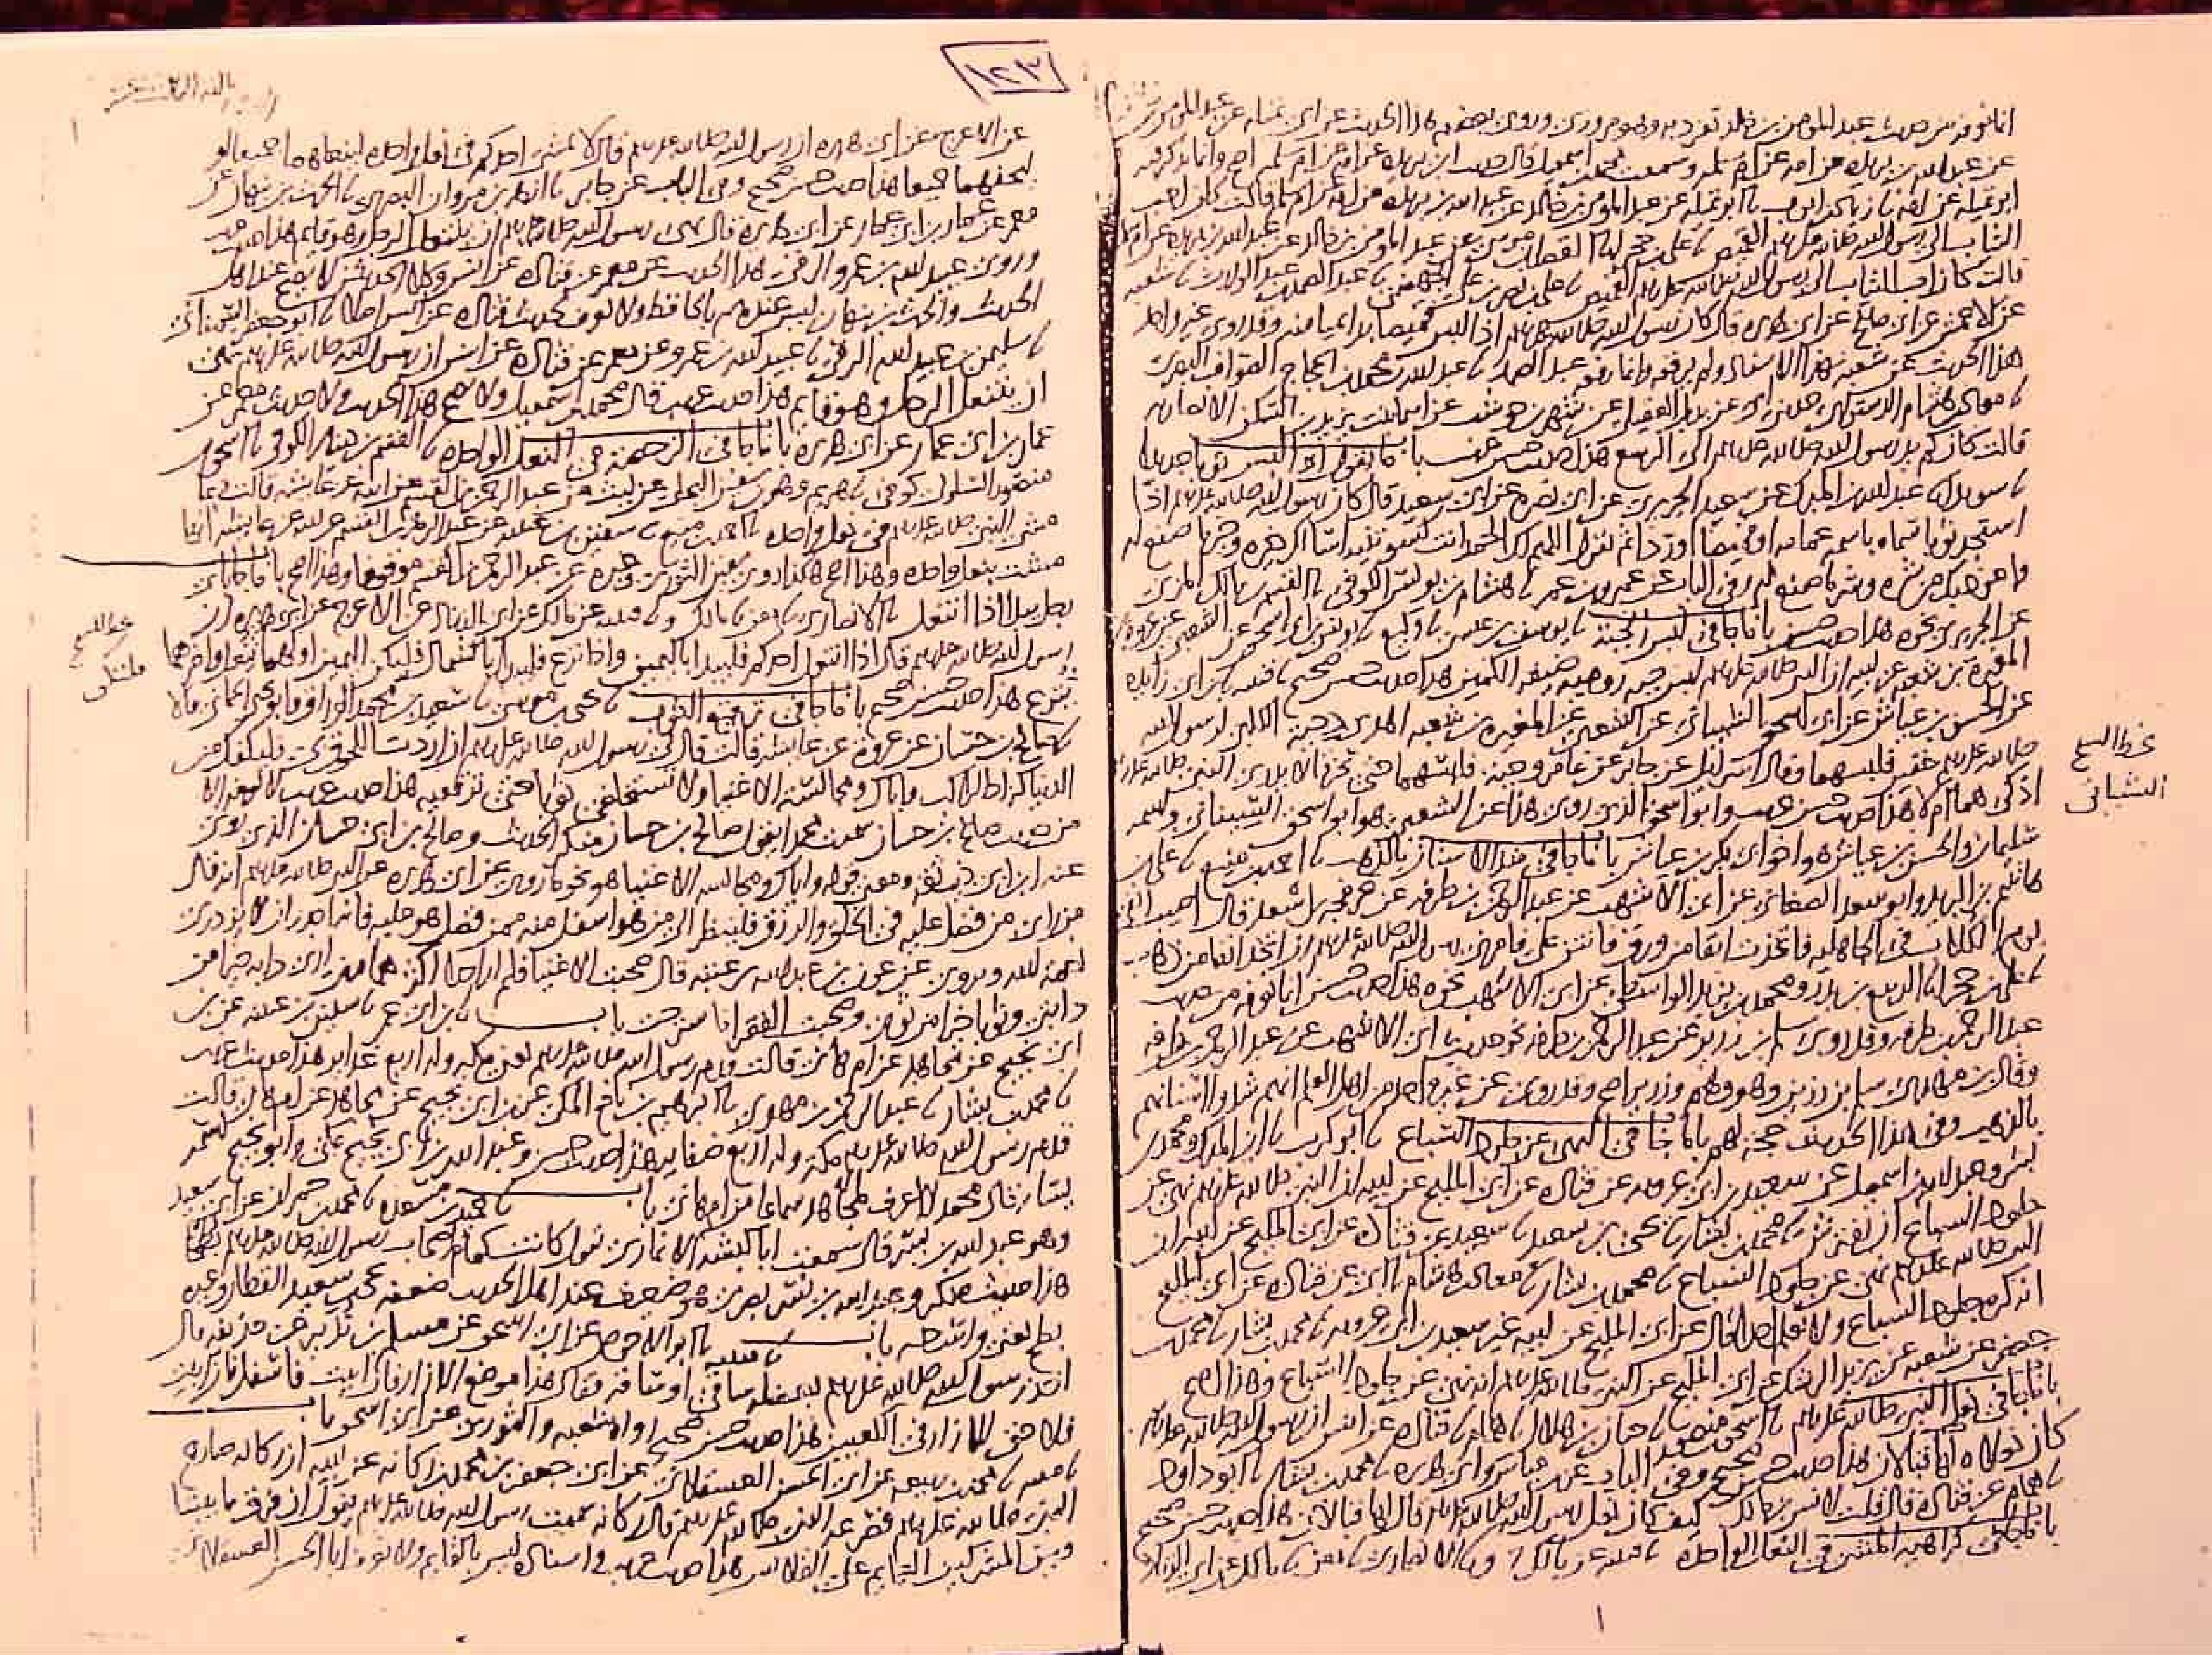 انما نعرفه من حديث عبد المومن بن خلد تفرد به وهو مروزي وروى بعضهم هذا الحديث عن ابي تميله عن عبد المومن
عن عبد الله بن بريده عن امه عن ام سلمه وسمعت محمد بن اسمعيل قال حديث ابن بريده عن امه عن ام سلمه اصح وانما يذكر فيه
ابو تميله عن امه نا زياد بن ايوب نا ابو تميله عن عبد المومن بن خالد عن عبد الله بن بريده عن امه عن ام سلمه قالت كان احب
الثياب الى رسول الله صلى الله عليه وسلم القميص نا علي بن حجر انا الفضل بن موسى عن عبد المومن بن خالد عن عبد الله بن بريده عن ام سلمه
قالت كان احب الثياب الى رسول الله صلى الله عليه وسلم القميص نا علي بن نصر بن علي الجهضمي نا عبد الصمد بن عبد الوارث نا شعبه
عن الاعمش عن ابي صالح عن ابي هريره قال كان رسول الله صلى الله عليه وسلم اذا لبس قميصا بدا بميامنه وقد روى غير واحد
هذا الحديث عن شعبه بهذا الاسناد ولم يرفعه وانما رفعه عبد الصمد نا عبد الله بن محمد بن الحجاج الصواف البصري
نا معاذ بن هشام الدستوائي حدثني ابي عن بديل العقيلي عن شهر بن حوشب عن اسما بنت يزيد بن السكن الانصاريه
قالت كان كم يد رسول الله صلى الله عليه وسلم الى الرسغ هذا حديث حسن غريب باب ما يقول اذا لبس ثوبا جديدا
نا سويد انا عبد الله بن المبارك عن سعيد الجريري عن ابي نضره عن ابي سعيد قال كان رسول الله صلى الله عليه وسلم اذا
استجد ثوبا سماه باسمه عمامه او قميصا او ردا ثم يقول اللهم لك الحمد انت كسوتنيه اسالك خيره وخير ما صنع له
واعوذ بك من شره وشر ما صنع له وفي الباب عن عمر وابن عمر نا هشام بن يونس الكوفي نا القسم بن مالك المزني
عن الجريري نحوه هذا حديث حسن باب ما جا في لبس الجبه نا يوسف بن عيسى نا وكيع نا يونس بن ابي اسحق عن الشعبي عن عروه بن
المغيره بن شعبه عن ابيه ان النبي صلى الله عليه وسلم لبس جبه روميه ضيقه الكمين هذا حديث حسن صحيح نا قتيبه نا ابن ابي زايده
عن الحسن بن عياش عن ابي اسحق الشيباني عن الشعبي عن المغيره بن شعبه اهدى دحيه الكلبي لرسول الله
صلى الله عليه وسلم خفين فلبسهما وقال اسرايل عن جابر عن عامر وجبه فلبسهما حتى تخرقا لا يدري النبي صلى الله عليه وسلم
اذكى هما ام لا هذا حديث حسن غريب وابو اسحق الذي روى هذا عن الشعبي هو ابو اسحق الشيباني واسمه
سليمان والحسن بن عياش هو اخو ابي بكر بن عياش باب ما جا في شد الاسنان بالذهب نا احمد بن منيع نا علي بن
هاشم بن البريد وابو سعد الصغاني عن ابي الاشهب عن عبد الرحمن بن طرفه عن عرفجه بن اسعد قال اصيب انفي
يوم الكلاب في الجاهليه فاتخذت انفا من ورق فانتن علي فامرني رسول الله صلى الله عليه وسلم ان اتخذ انفا من ذهب
نا علي بن حجر انا الربيع بن بدر ومحمد بن يزيد الواسطي عن ابي الاشهب نحوه هذا حديث حسن انما نعرفه من حديث
عبد الرحمن بن طرفه وقد روى سلم بن زرير عن عبد الرحمن بن طرفه نحو حديث ابي الاشهب عن عبد الرحمن بن طرفه
وقال ابن مهدي سلم بن رزين وهو وهم وزرير اصح وقد روى عن غير واحد من اهل العلم انهم شدوا اسنانهم
بالذهب وفي هذا الحديث حجه لهم باب ما جا في النهي عن جلود السباع نا ابو كريب نا ابن المبارك ومحمد بن
بشر وعبد الله بن اسمعيل عن سعيد بن ابي عروبه عن قتاده عن ابي المليح عن ابيه ان النبي صلى الله عليه وسلم نهى عن
جلود السباع ان تفترش نا محمد بن بشار نا يحيى بن سعيد نا سعيد عن قتاده عن ابي المليح عن ابيه ان
النبي صلى الله عليه وسلم نهى عن جلود السباع نا محمد بن بشار نا معاذ بن هشام نا ابي عن قتاده عن ابي المليح
انه كره جلود السباع ولا نعلم احدا قال عن ابي المليح عن ابيه غير سعيد بن ابي عروبه نا محمد بن بشار نا محمد بن
جعفر عن شعبه عن يزيد الرشك عن ابي المليح عن النبي صلى الله عليه وسلم انه نهى عن جلود السباع وهذا اصح
باب ما جا في نعل النبي صلى الله عليه وسلم نا اسحق بن منصور نا حبان بن هلال نا همام نا قتاده عن انس ان رسول الله صلى الله عليه وسلم
كان نعلاه لهما قبالان هذا حديث حسن صحيح وفي الباب عن ابن عباس وابي هريره نا محمد بن بشار نا ابو داود
نا همام عن قتاده قال قلت لانس بن مالك كيف كان نعل رسول الله صلى الله عليه وسلم قال لهما قبالان هذا حديث حسن صحيح
باب ما جا في كراهيه المشي في النعل الواحده نا قتيبه عن مالك ونا الانصاري نا معن نا مالك عن ابي الزناد
بخط الشيخ
الشيباني
١٢٣
عن الاعرج عن ابي هريره ان رسول الله صلى الله عليه وسلم قال لا يمشي احدكم في نعل واحده لينعلهما جميعا او
ليحفهما جميعا هذا حديث حسن صحيح وفي الباب عن جابر نا ازهر بن مروان البصري نا الحرث بن نبهان عن
معمر عن عمار بن ابي عمار عن ابي هريره قال نهى رسول الله صلى الله عليه وسلم ان ينتعل الرجل وهو قايم هذا حديث غريب
وروى عبيد الله بن عمرو الرقي هذا الحديث عن معمر عن قتاده عن انس وكلا الحديثين لا يصح عند اهل
الحديث والحرث بن نبهان ليس عندهم بالحافظ ولا نعرف لحديث قتاده عن انس اصلا نا ابو جعفر السمناني
نا سليمن بن عبيد الله الرقي نا عبيد الله بن عمرو عن معمر عن قتاده عن انس ان رسول الله صلى الله عليه وسلم نهى
ان ينتعل الرجل وهو قايم هذا حديث غريب قال محمد بن اسمعيل ولا يصح هذا الحديث ولا حديث معمر عن
عمار بن ابي عمار عن ابي هريره باب ما جا في الرخصه في النعل الواحده نا القسم بن دينار الكوفي نا اسحق بن
منصور السلولي كوفي نا هريم وهو بن سفين البجلي عن ليث عن عبد الرحمن بن القسم عن ابيه عن عايشه قالت ربما
مشى النبي صلى الله عليه وسلم في نعل واحده نا احمد بن منيع نا سفين بن عيينه عن عبد الرحمن بن القسم عن ابيه عن عايشه انها
مشت بنعل واحده وهذا اصح هكذا روى سفين الثوري وغيره عن عبد الرحمن بن القسم موقوفا وهذا اصح باب ما جا باي
رجل يبدا اذا انتعل نا الانصاري نا معن نا مالك ونا قتيبه عن مالك عن ابي الزناد عن الاعرج عن ابي هريره ان
رسول الله صلى الله عليه وسلم قال اذا انتعل احدكم فليبدا باليمين واذا نزع فليبدا بالشمال فليكن اليمين اولهما تنعل واخرهما
تنزع هذا حديث حسن صحيح باب ما جا في ترقيع الثوب نا يحيى بن موسى نا سعيد بن محمد الوراق وابو يحيى الحماني قالا
نا صالح بن حسان عن عروه عن عايشه قالت قال لي رسول الله صلى الله عليه وسلم ان اردت اللحوق بي فليكفك من
الدنيا كزاد الراكب واياك ومجالسه الاغنيا ولا تستخلقي ثوبا حتى ترقعيه هذا حديث غريب لا نعرفه الا
من حديث صالح بن حسان سمعت محمدا يقول صالح بن حسان منكر الحديث وصالح بن ابي حسان الذي روى
عنه ابن ابي ذيب ثقه ومعنى قوله واياك ومجالسه الاغنيا هو نحو ما روي عن ابي هريره عن النبي صلى الله عليه وسلم انه قال
من راى من فضل عليه في الخلق والرزق فلينظر الى من هو اسفل منه ممن فضل هو عليه فانه اجدر ان لا يزدري
نعمه الله ويروى عن عون بن عبد الله بن عتبه قال صحبت الاغنيا فلم ار احدا اكثر هما مني ارى دابه خيرا من
دابتي وثوبا خيرا من ثوبي وصحبت الفقرا فاسترحت باب نا ابن ابي عمر نا سفين بن عيينه عن ابن
ابي نجيح عن مجاهد عن ام هاني قالت قدم رسول الله صلى الله عليه وسلم يعني مكه وله اربع غداير هذا حديث غريب
نا محمد بن بشار نا عبد الرحمن بن مهدي نا ابرهيم بن نافع المكي عن ابن ابي نجيح عن مجاهد عن ام هاني قالت
قدم رسول الله صلى الله عليه وسلم مكه وله اربع ضفاير هذا حديث حسن وعبد الله بن ابي نجيح مكي وابو نجيح اسمه
يسار قال محمد لا اعرف لمجاهد سماعا من ام هاني باب نا حميد بن مسعده نا محمد بن حمران عن ابي سعيد
وهو عبد الله بن بسر قال سمعت ابا كبشه الانماري يقول كانت كمام اصحاب رسول الله صلى الله عليه وسلم بطحا
هذا حديث منكر وعبد الله بن بسر بصري هو ضعيف عند اهل الحديث ضعفه يحيى بن سعيد القطان وغيره
بطح يعني واسعه باب نا قتيبه نا ابو الاحوص عن ابي اسحق عن مسلم بن نذير عن حذيفه قال
اخذ رسول الله صلى الله عليه وسلم بعضله ساقي او ساقه فقال هذا موضع الازار فان ابيت فاسفل فان ابيت
فلا حق للازار في الكعبين هذا حديث حسن صحيح رواه شعبه والثوري عن ابي اسحق باب
نا قتيبه نا محمد بن ربيعه عن ابي الحسن العسقلاني عن ابي جعفر بن محمد بن ركانه عن ابيه ان ركانه صارع
النبي صلى الله عليه وسلم فصرعه النبي صلى الله عليه وسلم قال ركانه سمعت رسول الله صلى الله عليه وسلم يقول ان فرق ما بيننا
وبين المشركين العمايم على القلانس هذا حديث غريب واسناده ليس بالقايم ولا نعرف ابا الحسن العسقلاني